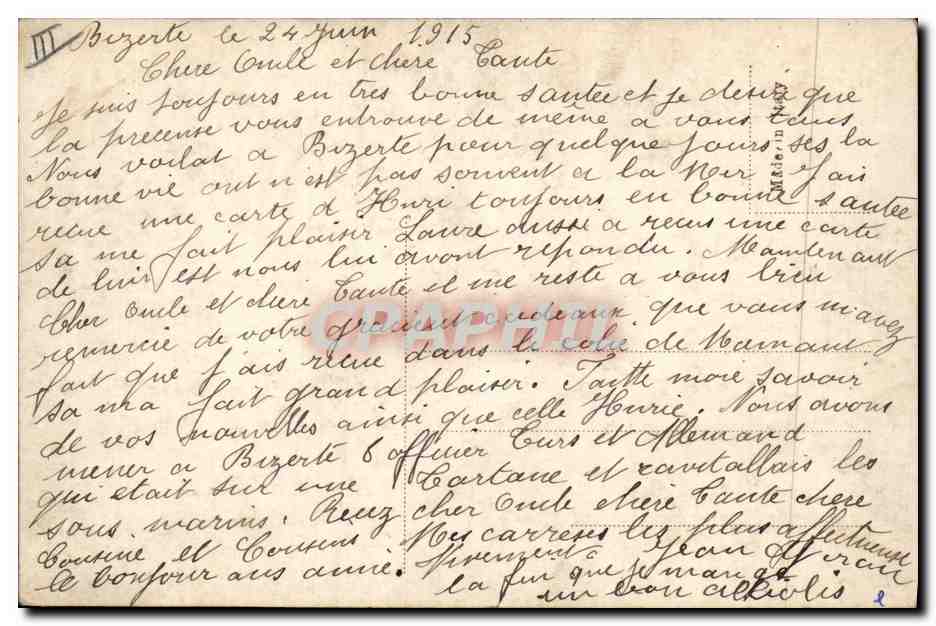 III Bizerte le 24 Juin 1915
Chere Oncle et chere Tante
Je suis toujours en tres bonne santée et je desire que
la precense vous entrouve de même a vous tous
Nous voilat a Bizerte pour quelque jours ses la
bonne vie ont n est pas souvent a la Mer Jais
recue une carte d Henri toujours en bonne santée
sa me fait plaisir Laure ausse a recus une carte
de luir est nous lui avont repondu. Maintenant
Cher Oncle et chere Tante il me reste a vous bien
remercie de votre gracieux cadeaux que vous m'avez
fait que j'ais recue dans le colie de Mamant
sa ma fait grand plaisir. Faitte moie savoir
de vos nouvelles ainsi que celle Hurie. Nous avons
mener a Bizerte 6 officier Turs et Allemand
qui etait sur une Tartane et ravitallais les
sous marins. Recez cher Oncle chere Tante chere
Cousine et Cousens Mes carreses lez plus affectueuse
le bonjour aus amie. Vivement Jean
la fin que je mange
un bon
Made in Italy
CPAPHIL